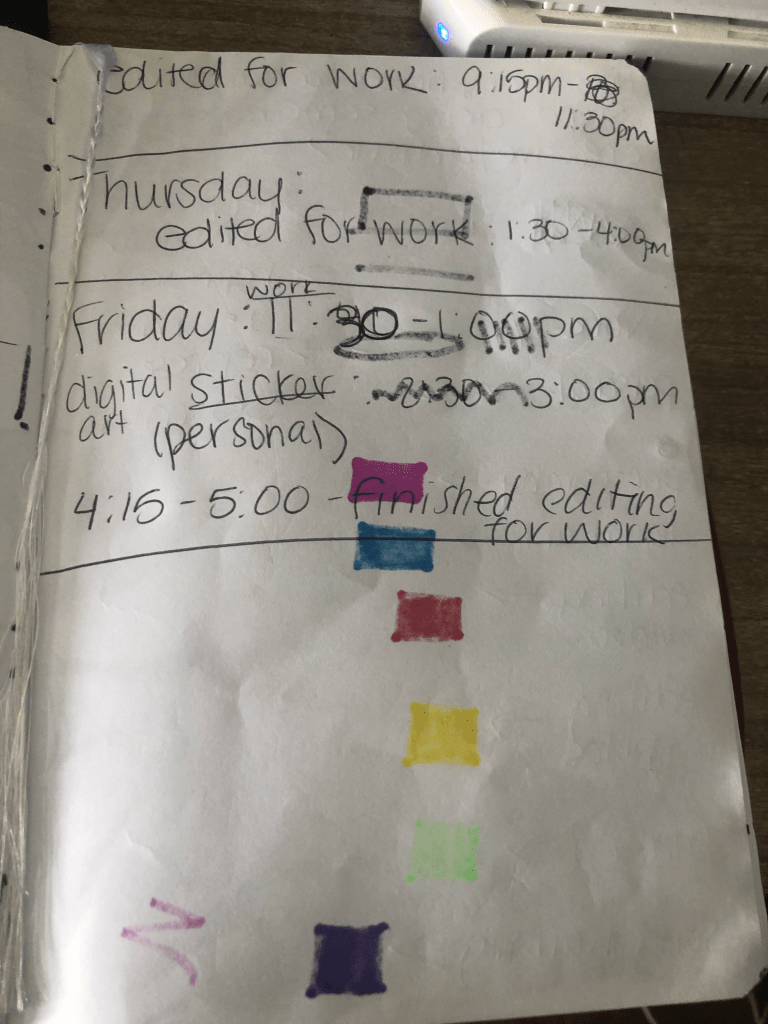 edited for work: 9:15pm-
11:30pm
Thursday:
edited for work: 1:30-4:00pm
work
Friday: 11:30-1:00pm
digital sticker: 2:30-3:00pm
art (personal)
4:15-5:00-finished editing
for work